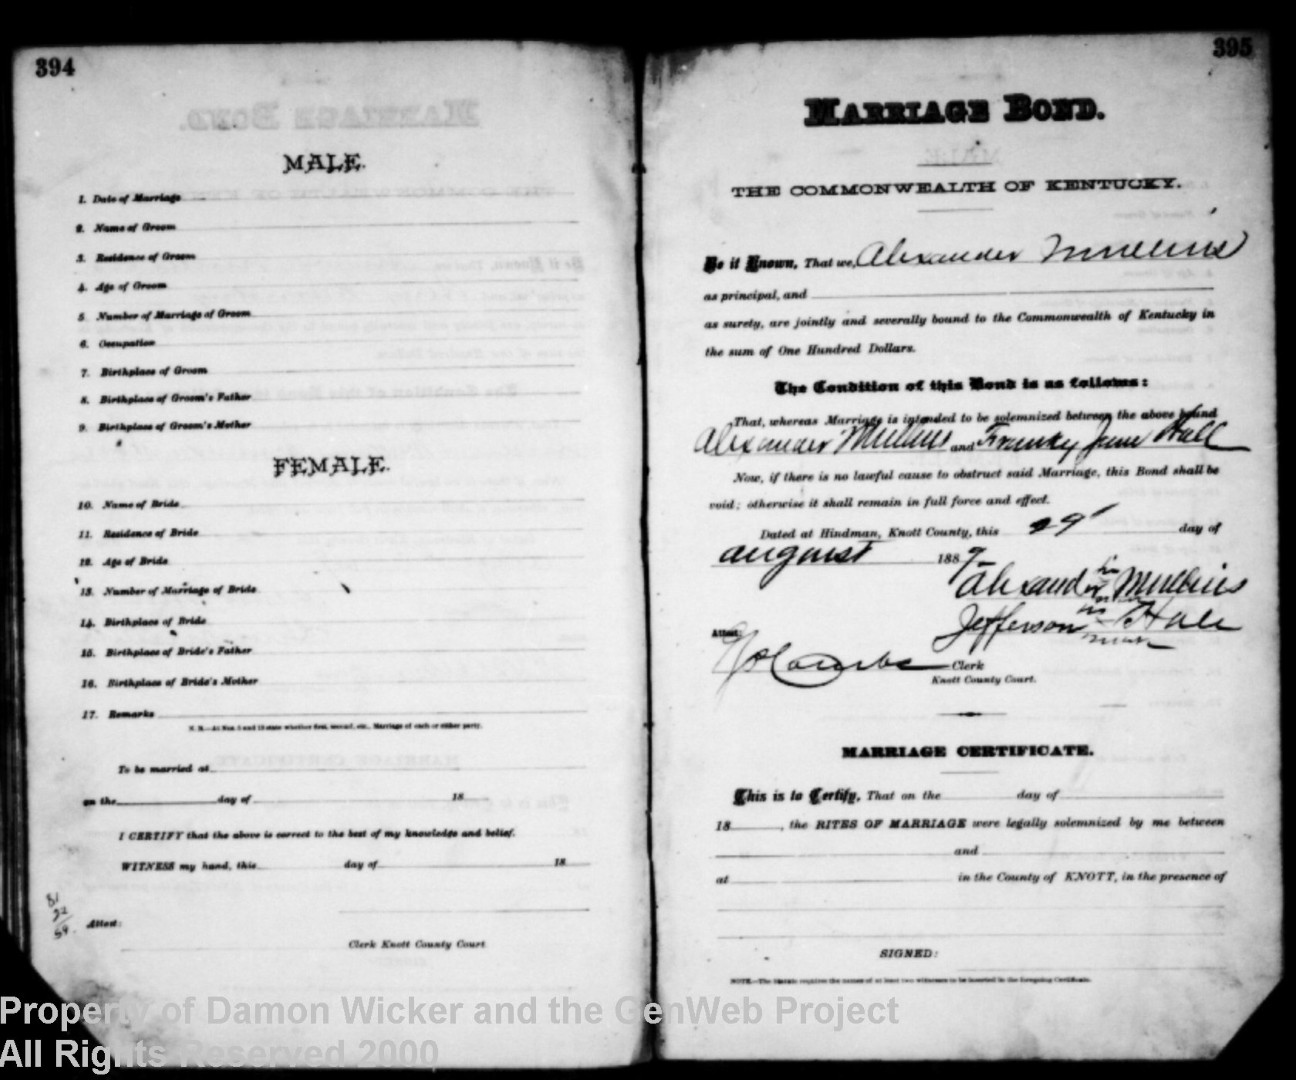 394
MALE.
1. Date of Marriage
2. Name of Groom
3. Residence of Groom
4. Age of Groom
5. Number of Marriage of Groom
6. Occupation
7. Birthplace of Groom
8. Birthplace of Groom's Father
9. Birthplace of Groom's Mother
FEMALE.
10. Name of Bride
11. Residence of Bride
12. Age of Bride
13. Number of Marriage of Bride
14. Birthplace of Bride
15. Birthplace of Bride's Father
16. Birthplace of Bride's Mother
17. Remarks
N. B.—At Nos. 5 and 13 state whether first, second, etc., Marriage of each or either party.
To be married at
on the day of 18
I CERTIFY that the above is correct to the best of my knowledge and belief.
WITNESS my hand, this day of 18
81
22
59.
Attest:
Clerk Knott County Court
395
MARRIAGE BOND.
THE COMMONWEALTH OF KENTUCKY.
Be it Known, That we, Alexander Mullins
as principal, and
as surety, are jointly and severally bound to the Commonwealth of Kentucky in
the sum of One Hundred Dollars.
The Condition of this Bond is as follows:
That, whereas Marriage is intended to be solemnized between the above bound
Alexander Mullins and Franky Jane Hall
Now, if there is no lawful cause to obstruct said Marriage, this Bond shall be
void; otherwise it shall remain in full force and effect.
Dated at Hindman, Knott County, this 29 day of
August 1889
his
Alexander Mullins
Jefferson Hall
mark
Attest:
Combs Clerk
Knott County Court.
MARRIAGE CERTIFICATE.
This is to Certify, That on the day of
18 , the RITES OF MARRIAGE were legally solemnized by me between
and
at in the County of KNOTT, in the presence of
SIGNED:
NOTE.—The Statute requires the names of at least two witnesses to be inserted in the foregoing Certificate.
Property of Damon Wicker and the GenWeb Project
All Rights Reserved 2000